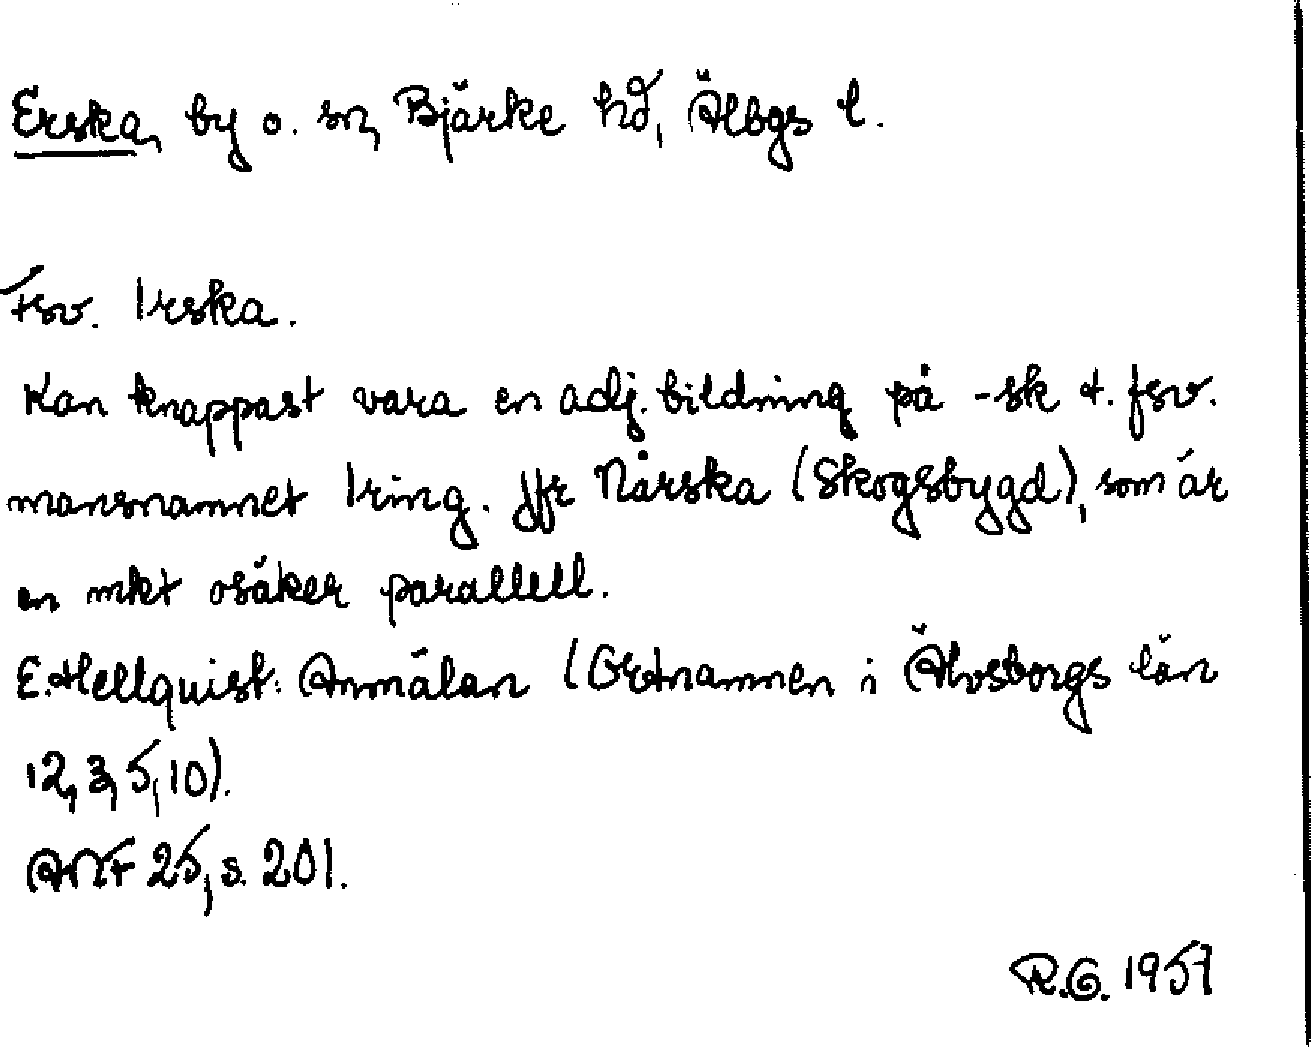 Erska, by o. sn, Bjärke hd, Älbgs l.
Fsv. Irska.
Kan knappast vara en adj. bildning på -sk t. fsv.
mansnamnet Iring. Jfr Nårska (Skogsbygd), som är
en mkt osäker parallell.
E. Hellquist: Anmälan (Ortnamnen i Älvsborgs län
12, 3, 5, 10).
ANF 25, s. 201.
R.G. 1957